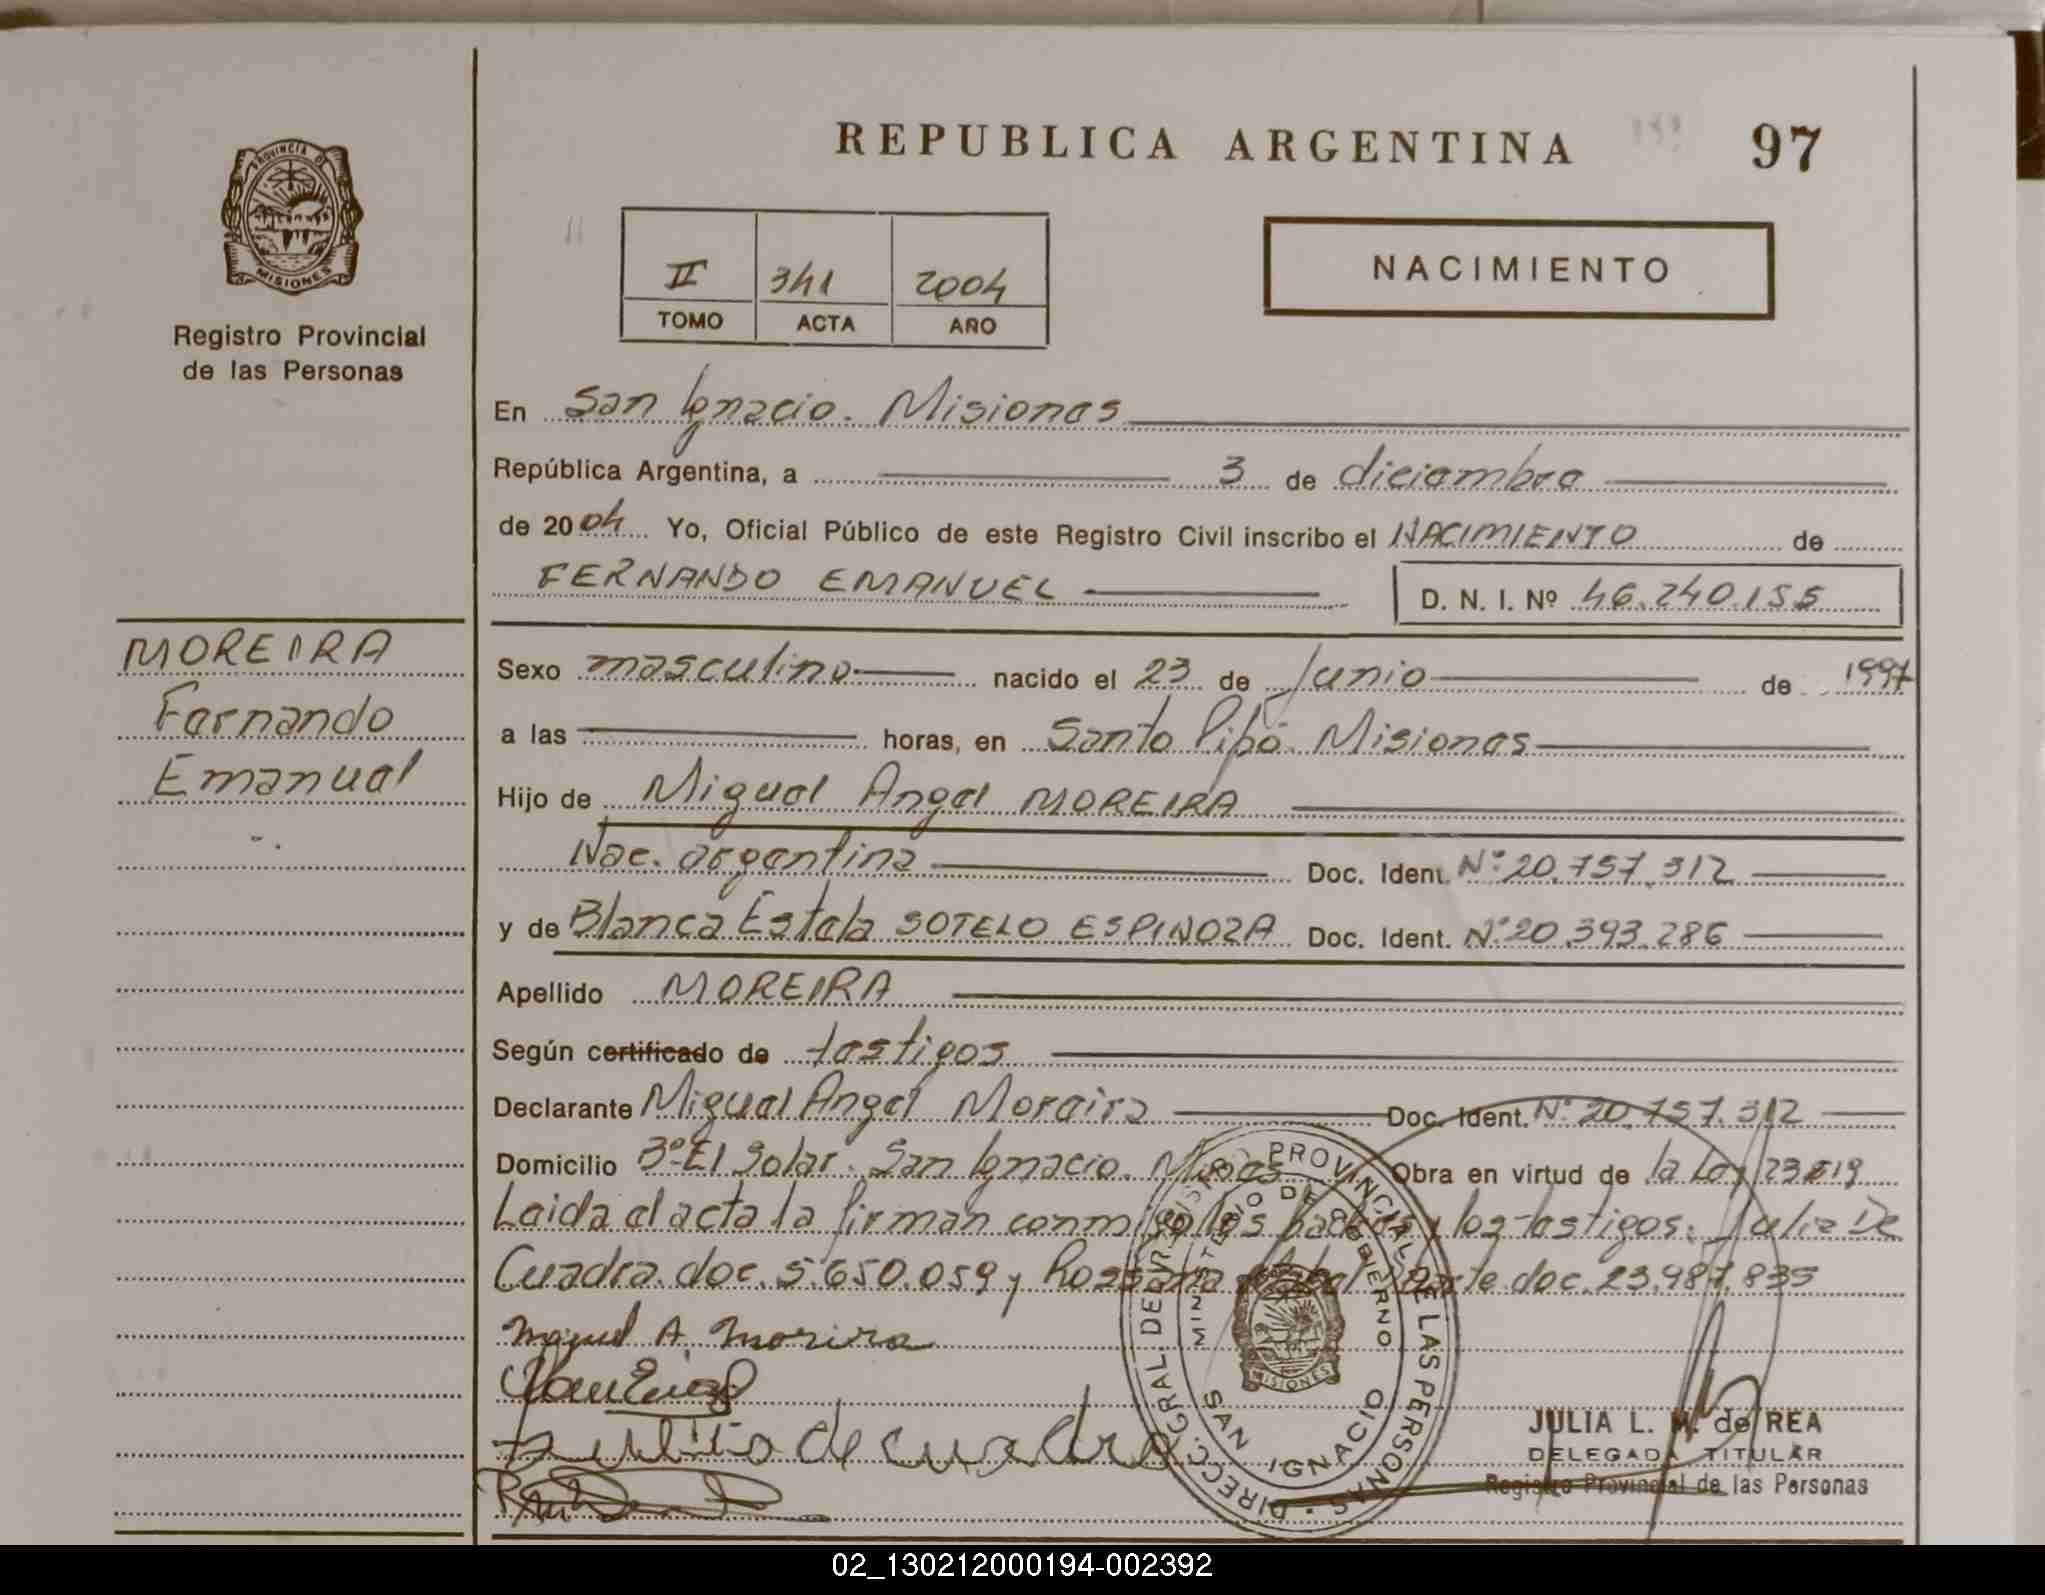 REPUBLICA ARGENTINA
97
PROVINCIA DE
MISIONES
Registro Provincial
de las Personas
II 341 2004
TOMO ACTA AÑO
NACIMIENTO
En San Ignacio. Misiones
República Argentina, a 3 de diciembre
de 2004 Yo, Oficial Público de este Registro Civil inscribo el NACIMIENTO de
FERNANDO EMANUEL D. N. I. Nº 46.240.155
MOREIRA
Fernando
Emanuel
Sexo masculino nacido el 23 de Junio de 1997
a las horas, en Santo Pipó. Misiones
Hijo de Miguel Angel MOREIRA
Nac. argentina Doc. Ident. Nº 20.757.312
y de Blanca Estela SOTELO ESPINOZA Doc. Ident. Nº 20.393.286
Apellido MOREIRA
Según certificado de testigos
Declarante Miguel Angel Moreira Doc. Ident. Nº 20.757.312
Domicilio Bº El Solar. San Ignacio. Mnes Obra en virtud de la Ley 23.519
Leida el acta la firman conmigo los padres y los testigos: Julia De
Cuadra doc. 5.650.059 y Rossana Duarte doc. 23.987.835
Miguel A. Moreira
Julia de cuadra
DIRECC. GRAL. DEL REGISTRO PROVINCIAL DE LAS PERSONAS
MINISTERIO DE GOBIERNO
MISIONES
SAN IGNACIO
JULIA L. M. de REA
DELEGADA TITULAR
Registro Provincial de las Personas
02_130212000194-002392